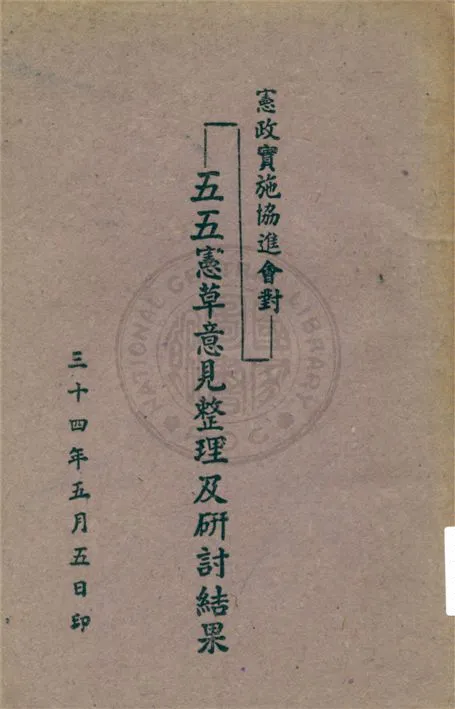 憲政實施協進會對
五五憲草意見整理及研討結果
三十四年五月五日印
NATIONAL CENTRAL LIBRARY